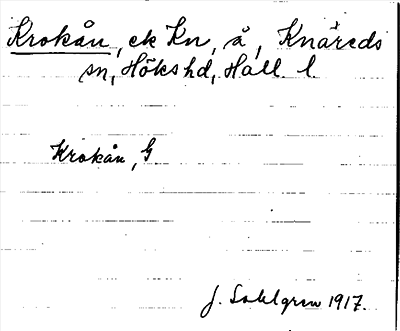 Krokån, ek Kn, å, Knäreds
sn, Höks hd, Hall. l.
Krokån, G
J. Sahlgren 1917.